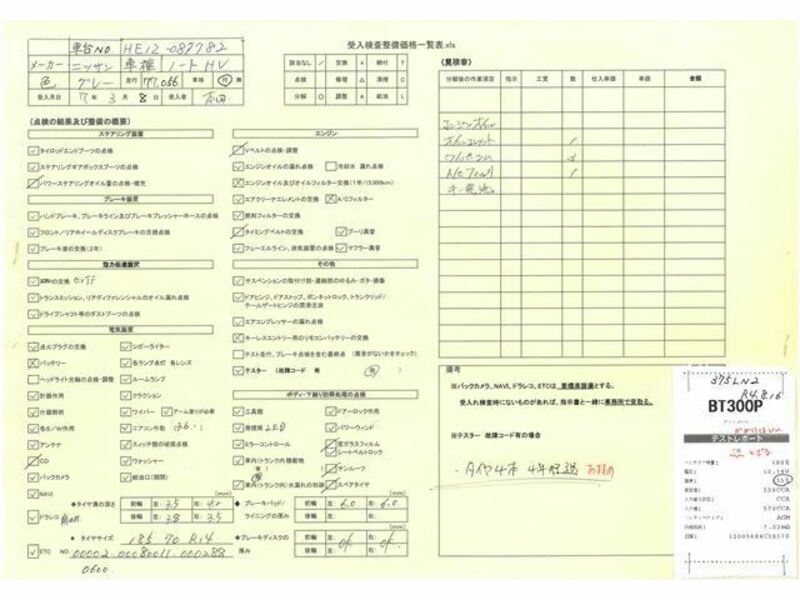 受入検査整備価格一覧表.xls
車台NO HE12-087782
メーカー ニッサン 車種 ノート HV
色 グレー 走行 77,056 車検 付 無
受入月日 7年 3月 8日 受入者 本田
該当なし ／ 交換 × 締付 T
点検 修理 △ 清掃 C
分解 ○ 調整 A 給油 L
(点検の結果及び整備の概要)
ステアリング装置
タイロッドエンドブーツの点検
ステアリングギアボックスブーツの点検
パワーステアリングオイル量の点検・補充
ブレーキ装置
ハンドブレーキ、ブレーキライン及びブレーキプレッシャーホースの点検
フロント/リアホイールディスクブレーキの目視点検
ブレーキ液の交換(2年)
動力伝達装置
トランスミッション、リアディファレンシャルのオイル漏れ点検
ドライブシャフト等のダストブーツの点検
電気装置
点火プラグの交換 シガーライター
バッテリー 各ランプ点灯 各レンズ
ヘッドライト光軸の点検・調整 ルームランプ
計器作用 クラクション
什器照明 ワイパー アーム塗りが必要
各S/W作用 エアコン作動
アンテナ スイッチ類の破損点検
CD ウォッシャー
バックカメラ 給油口(開閉)
NAVI
ドラレコ
◆タイヤ溝の深さ (mm)
前輪 左: 3.5 右: 4.2
後輪 左: 3.8 右: 3.5
◆タイヤサイズ 185 70 R14
ETC NO. 00002-00080011-000288
0600
エンジン
Vベルトの点検・調整
エンジンオイルの漏れ点検 冷却水 漏れ点検
エンジンオイル及びオイルフィルター交換(1年/15,000km)
エアクリーナエレメントの交換 A/Cフィルター
燃料フィルターの交換
タイミングベルトの交換 プーリ異音
フューエルライン、排気装置の点検 マフラー異音
その他
サスペンションの取付け部・連結部のゆるみ・ガタ・損傷
ドアヒンジ、ドアストップ、ボンネットロック、トランクリッド/
テールゲートヒンジの潤滑注油
エアコンプレッサーの漏れ点検
キーレスエントリー用のリモコンバッテリーの交換
テスト走行、ブレーキ点検を含む最終点 (異音がないかをチェック)
テスター (故障コード 有 無 )
ボディ・下廻り防錆処理の点検
工具類 ドアーロック作用
発煙筒 LED パワーウィンド
ミラーコントロール 窓ガラスフィルム
シートベルトロック
車内(トランク内)積載物 サンルーフ
有 ( )
車内(トランク内)水漏れの形跡 スペアタイヤ
◆ブレーキパッド/ライニングの厚み (mm)
前輪 左: 6.0 右: 6.0
後輪 左: 右:
◆ブレーキディスクの厚み (mm)
前輪 左: OK 右: OK
後輪 左: 右:
(見積書)
分解後の作業項目 指示 工賃 数 仕入単価 単価 金額
エンジンオイル
オイルエレメント 1
A/Cフィルタ 1
キー電池
備考
※バックカメラ、NAVI、ドラレコ、ETCは、
受入れ検査時にないものがあれば、指示書と一緒に事務所で受取る。
※テスター 故障コード有の場合
・タイヤ4本 4年経過
375LN2
R4.8.16
BT300P
テストレポート